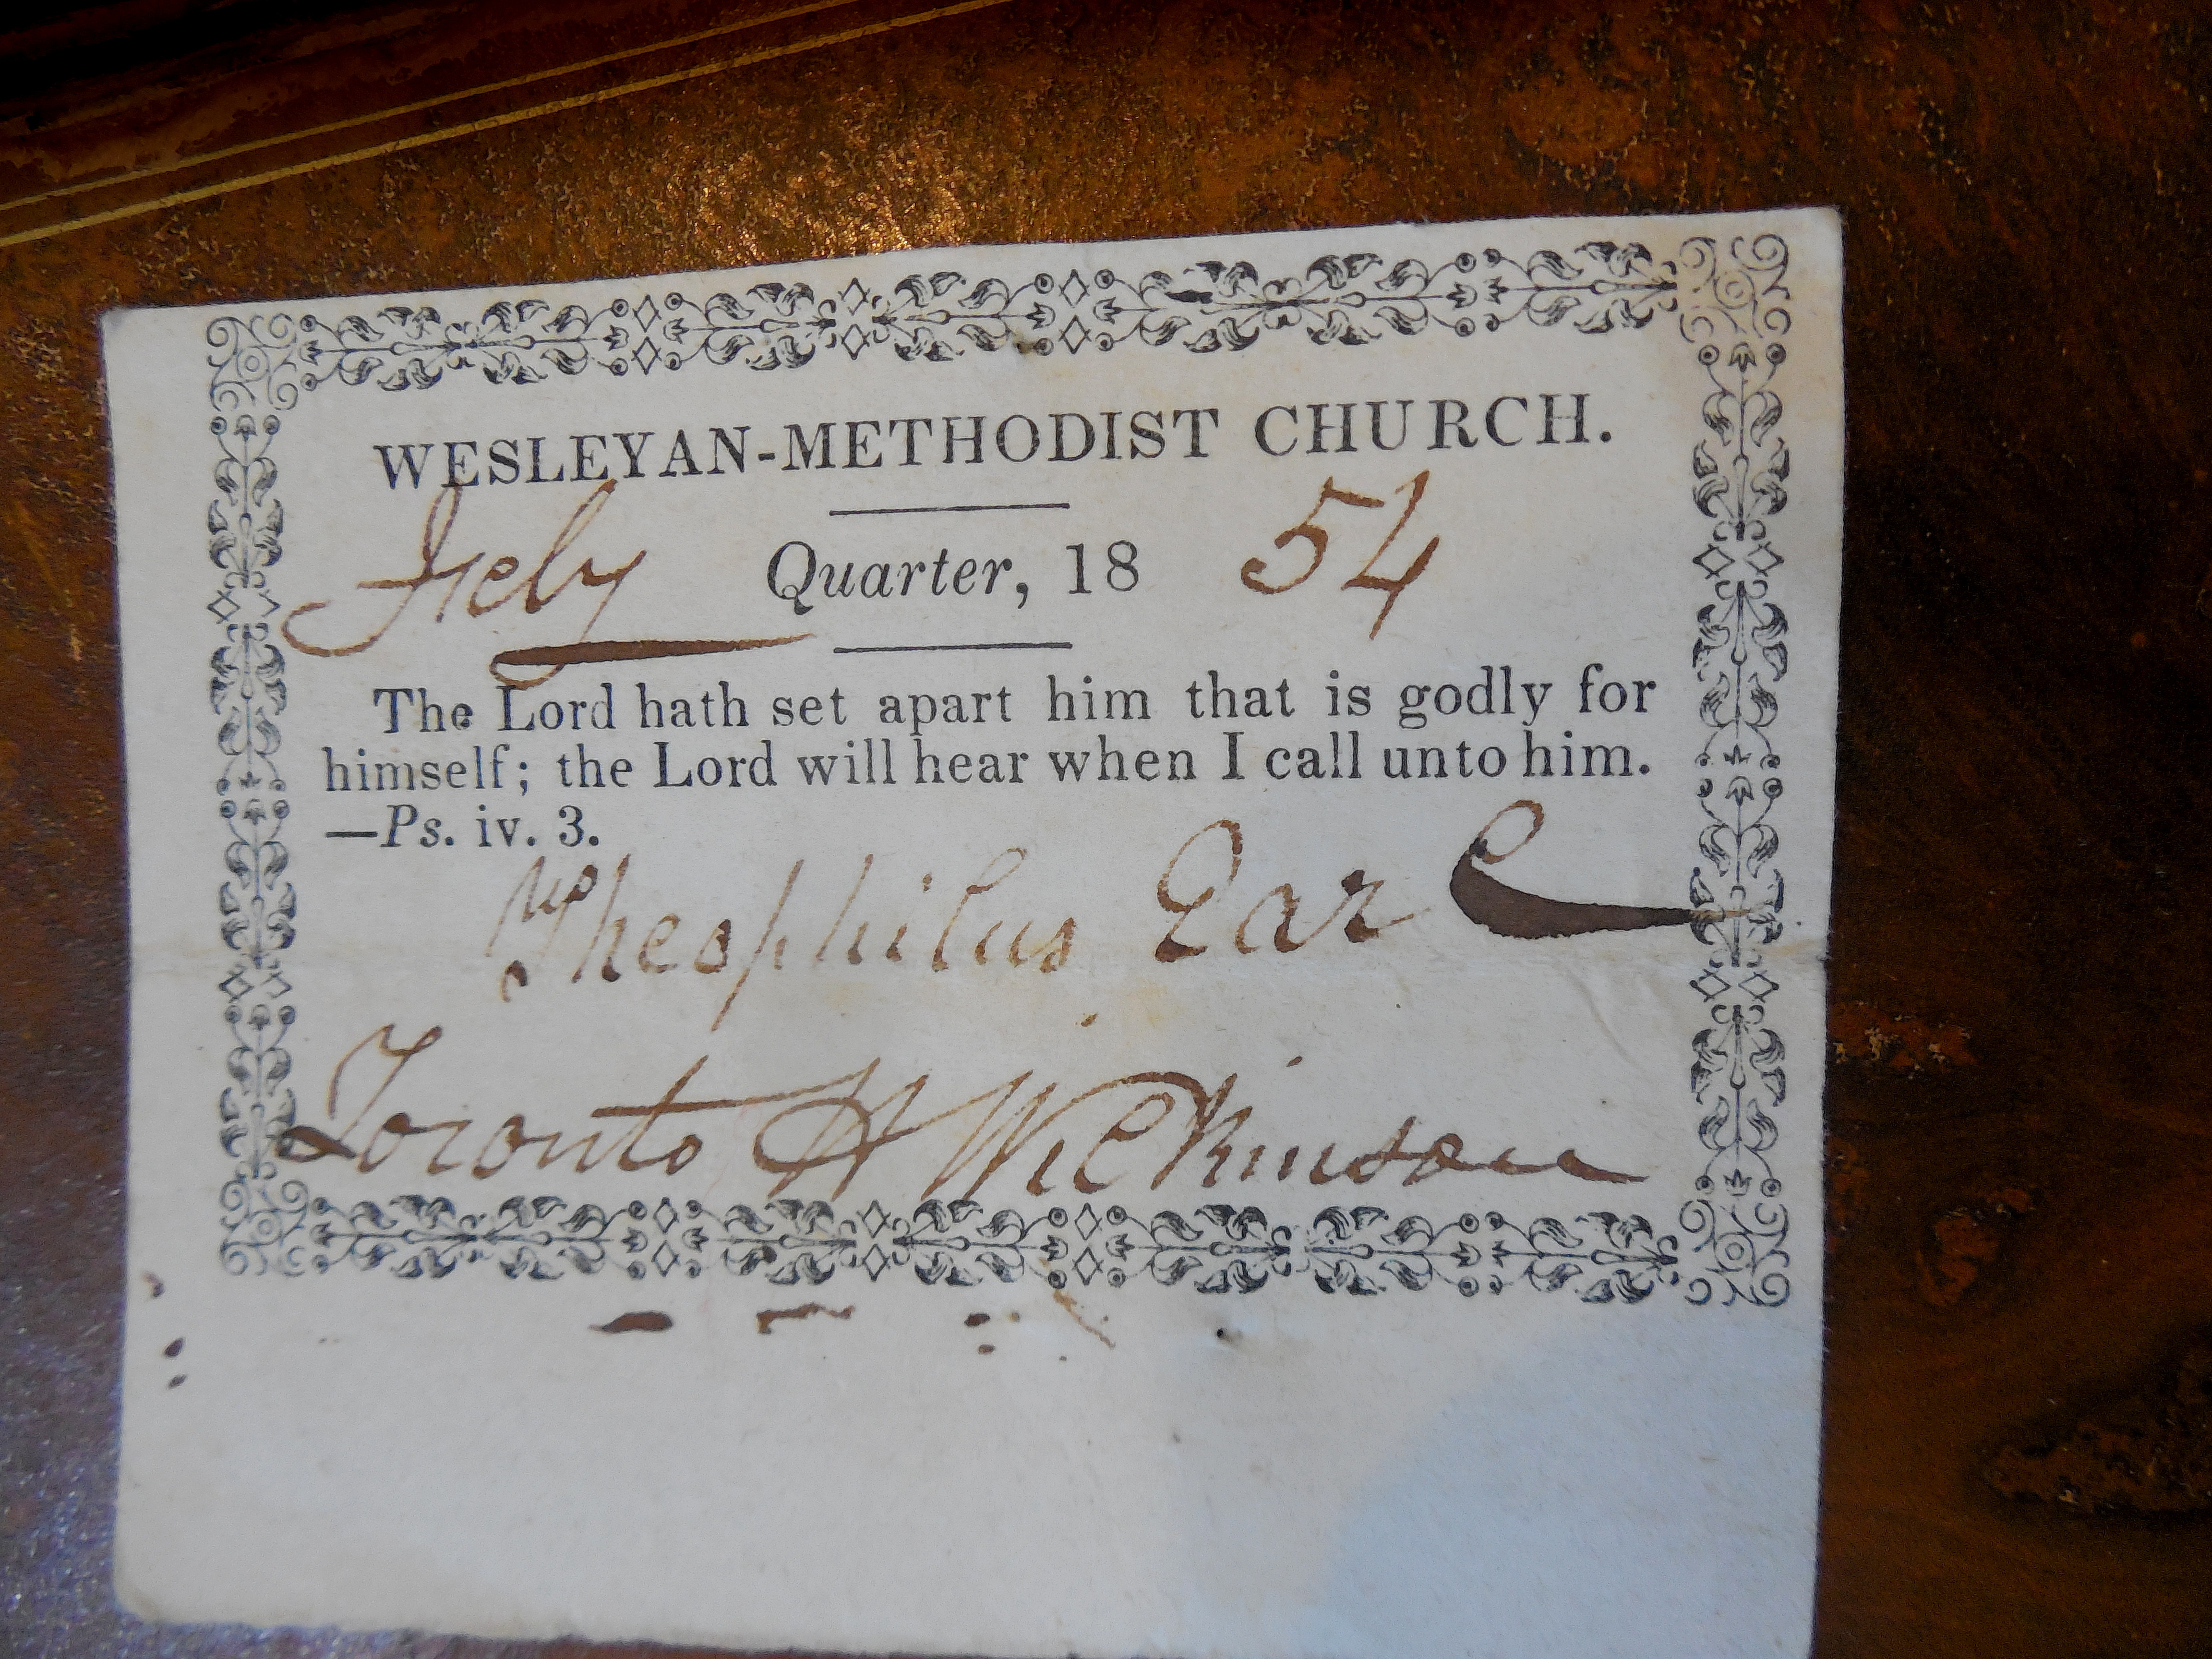 WESLEYAN-METHODIST CHURCH.
July Quarter, 18 54
The Lord hath set apart him that is godly for
himself; the Lord will hear when I call unto him.
—Ps. iv. 3.
Theophilus Earl
Toronto H Wilkinson